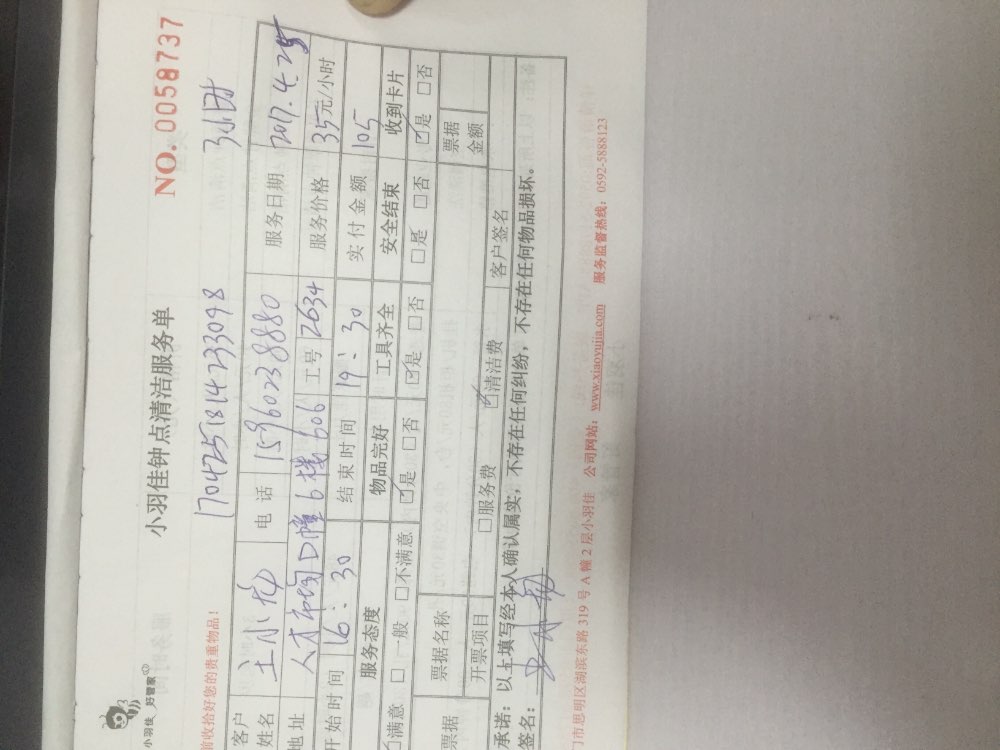 小羽佳 好管家
小羽佳钟点清洁服务单
NO. 0058737
前收拾好您的贵重物品!
1704251814233098 3小时
客户姓名 王小花 电话 15960238880 服务日期 2017.4.25
地址 D幢6楼606 工号 2634 服务价格 35元/小时
开始时间 16:30 结束时间 19:30 实付金额 105
服务态度 物品完好 工具齐全 安全结束 收到卡片
满意 □一般 □不满意 ☑是 □否 ☑是 □否 □是 □否 ☑是 □否
票据 票据名称 票据金额
开票项目 □服务费 ☑清洁费 客户签名
承诺:以上填写经本人确认属实,不存在任何纠纷,不存在任何物品损坏。
签名:
门市思明区湖滨东路 319 号 A 幢 2 层小羽佳 公司网站:www.xiaoyujia.com 服务监督热线:0592-5888123